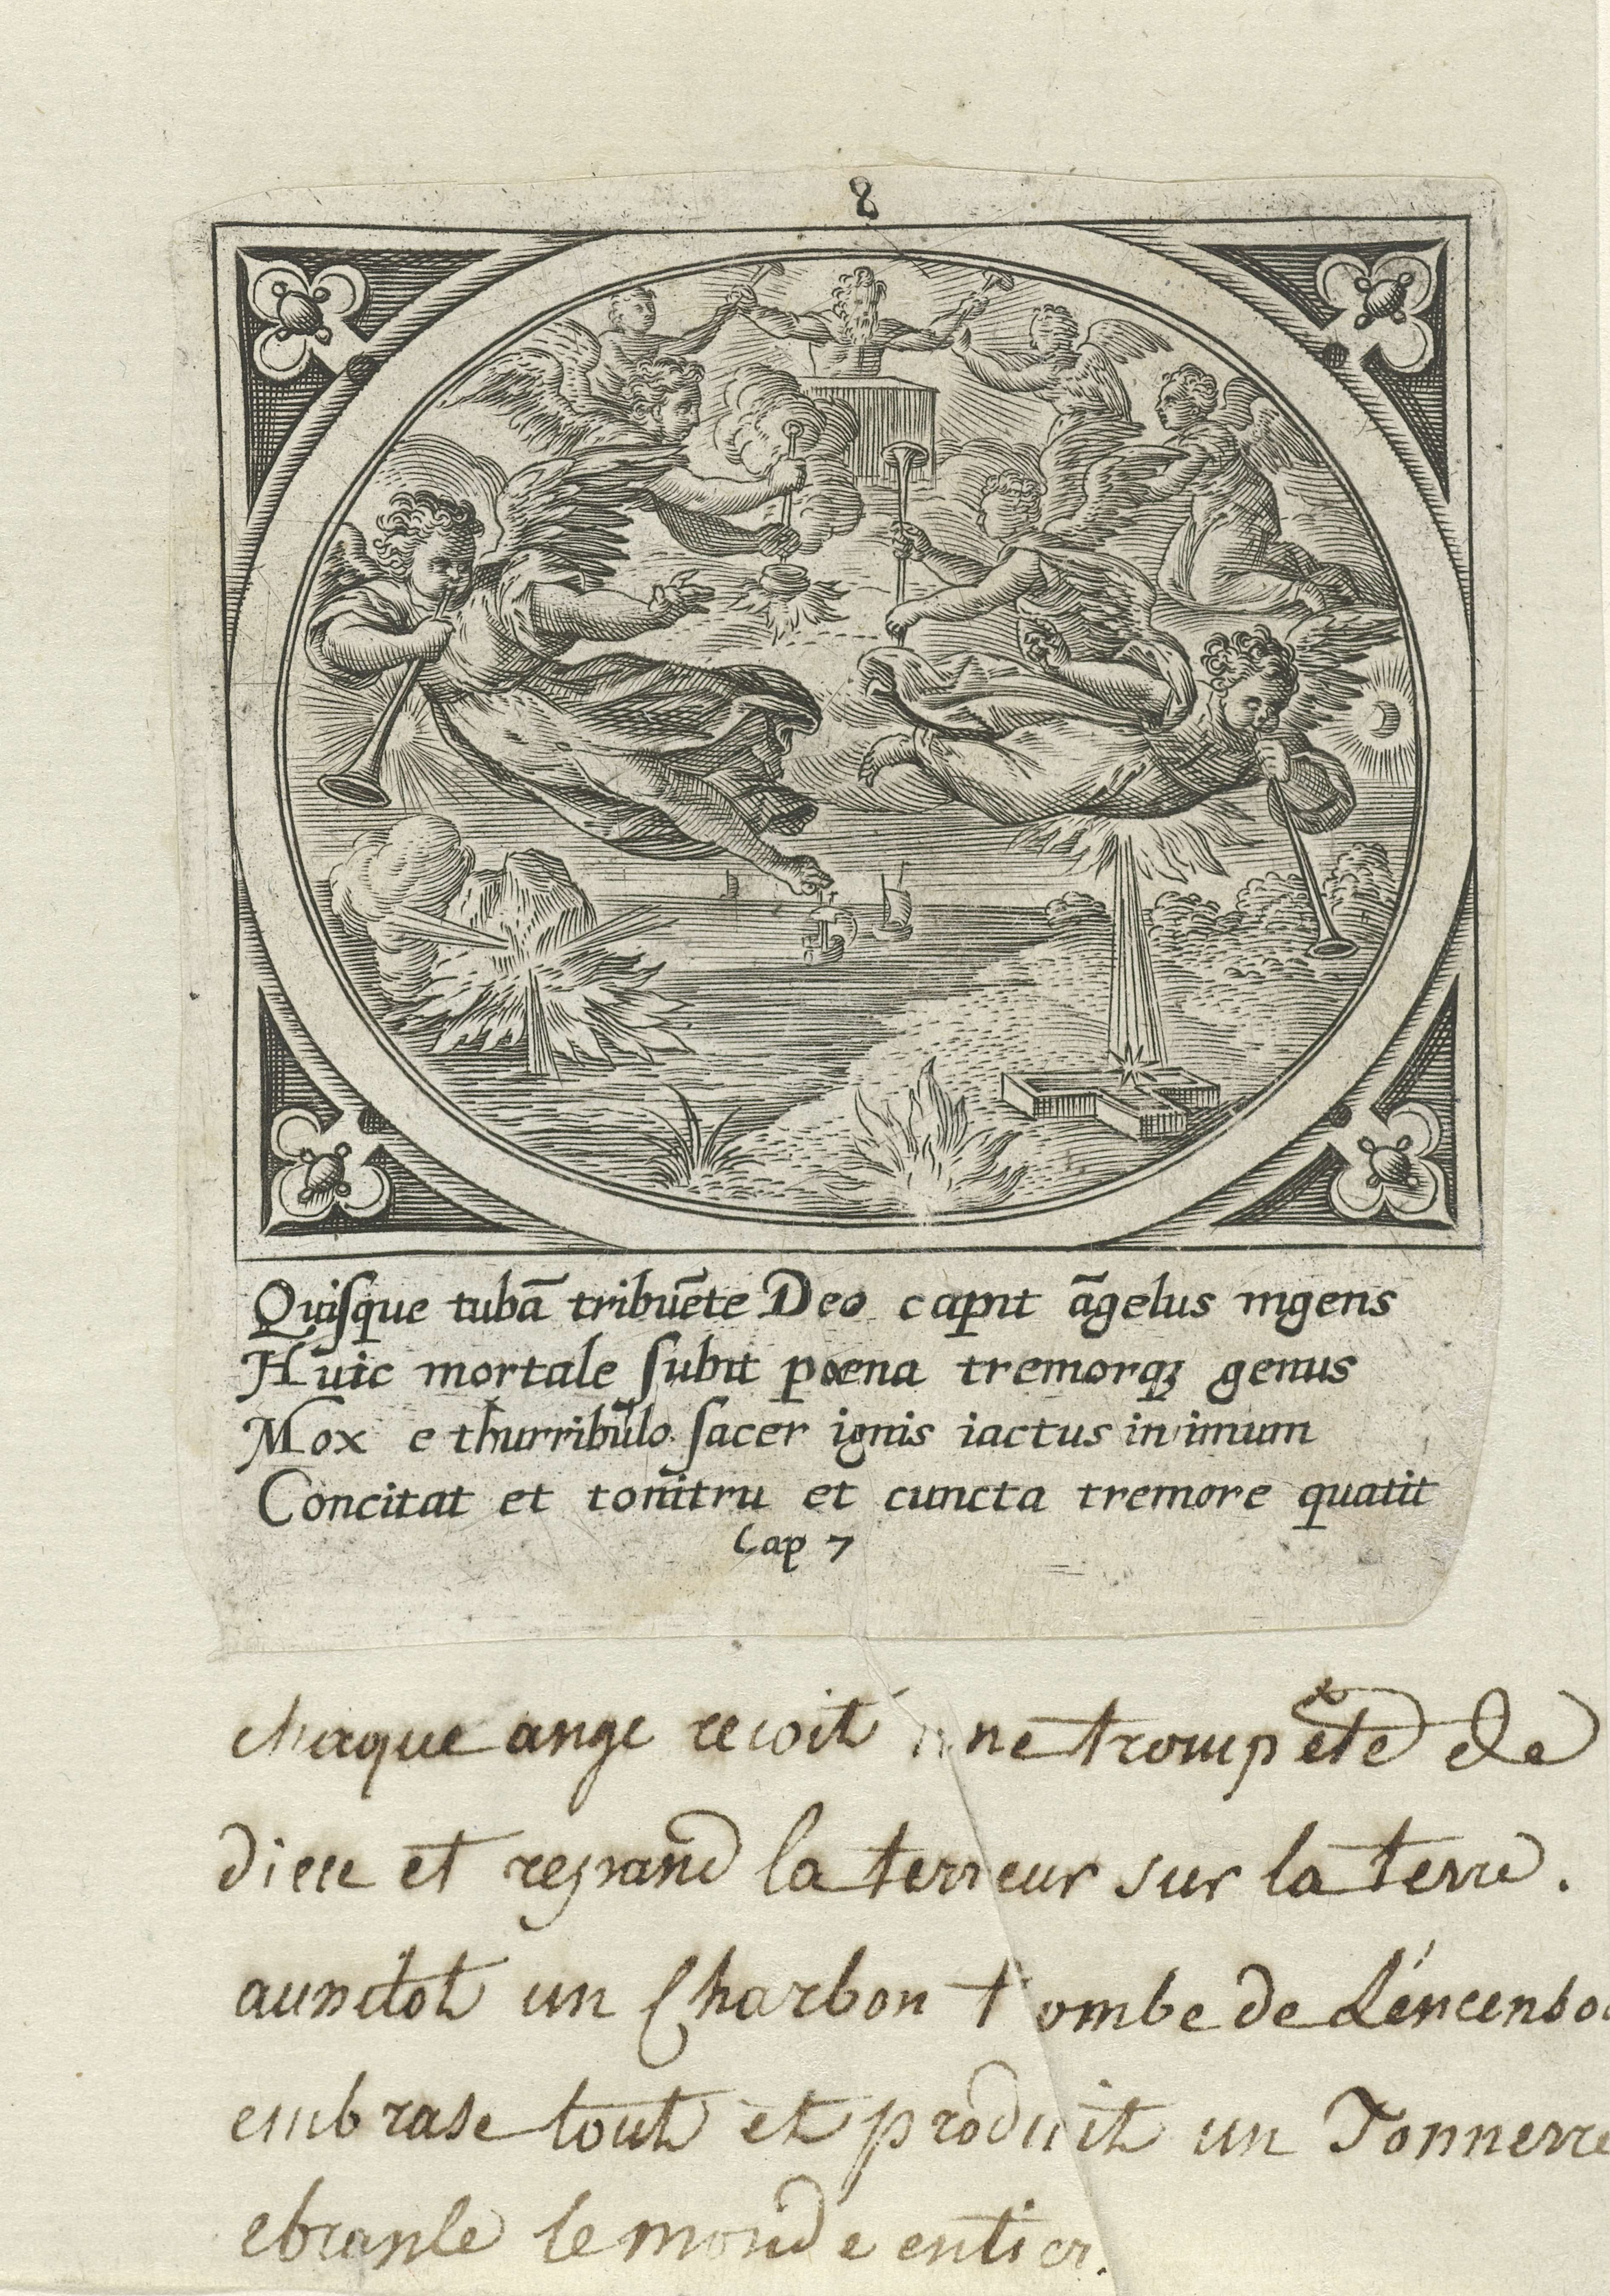 8
Quisque tubā tribuēte Deo capit āgelus ingens
Huic mortale subit poena tremorq; genus
Mox e thurribulo sacer ignis iactus in imum
Concitat et tonitru et cuncta tremore quatit
Cap 7
chaque ange recoit une trompète de
dieu et repand la terreur sur la terre.
aussitot un Charbon tombe de L'encensoi
embrase tout et produit un Tonnerre
ebranle le monde entier.